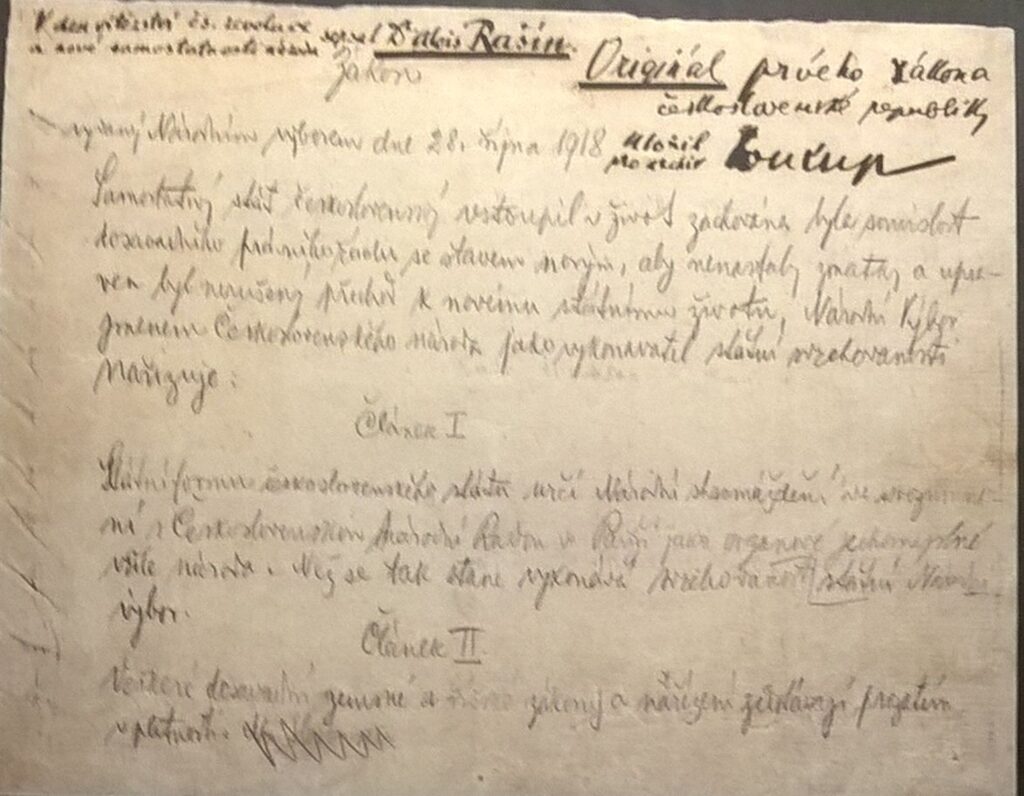 V den vítězství čs. revoluce
a nové samostatnosti národa sepsal Dr Alois Rašín.
Originál prvého zákona
československé republiky
uložil
pro archiv Soukup
Zákon
vydaný Národním výborem dne 28. října 1918
Samostatný stát československý vstoupil v život zachována byla souvislost
dosavadního právního řádu se stavem novým, aby nenastaly zmatky a upra-
ven byl nerušený přechod k novému státnímu životu, Národní Výbor
jmenem Československého národa jako vykonavatel státní svrchovanosti
nařizuje:
Článek I
Státní formu československého státu určí Národní shromáždění ve srozumě-
ní s Československou Národní Radou v Paříži jako orgánové jednomyslné
vůle národa. Než se tak stane vykonává svrchovanost státní Národní
výbor.
Článek II
Veškeré dosavadní zemské a zákony a nařízení zůstávají prozatím
v platnosti.